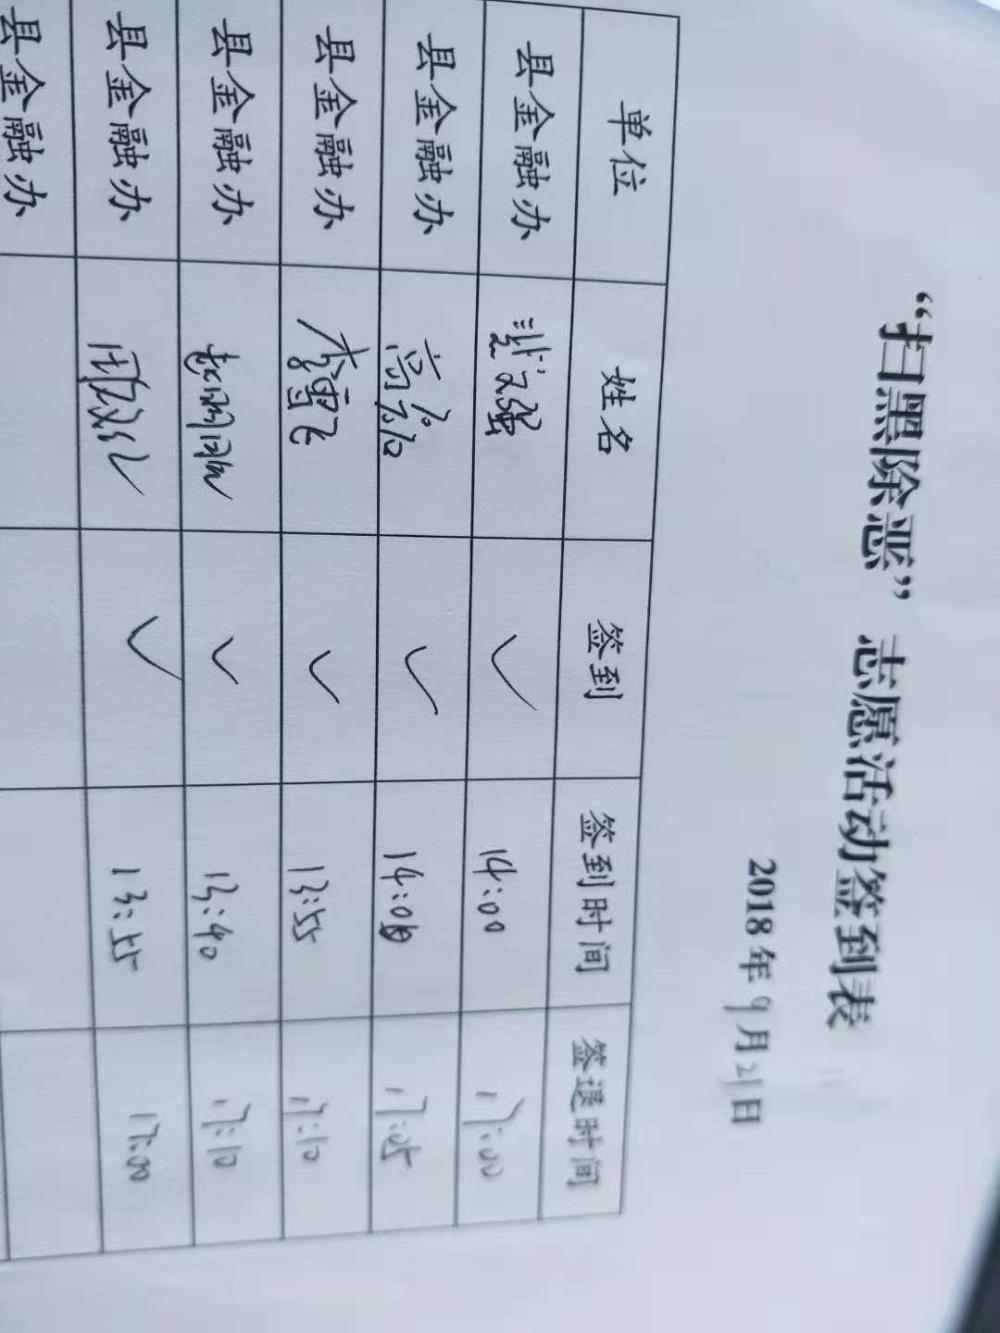 “扫黑除恶”志愿活动签到表
2018年9月21日
单位 姓名 签到 签到时间 签退时间
县金融办 ✓ 14:00 17:00
县金融办 ✓ 14:00 17:05
县金融办 李雪飞 ✓ 13:55 17:10
县金融办 ✓ 13:40 17:10
县金融办 ✓ 13:55 17:00
县金融办